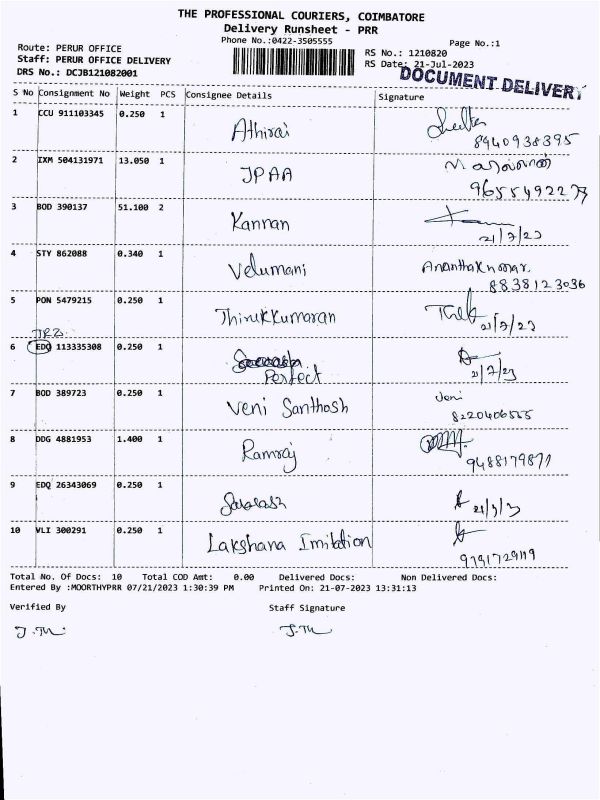 THE PROFESSIONAL COURIERS, COIMBATORE
Delivery Runsheet - PRR
Phone No.:0422-3505555
Page No.:1
Route: PERUR OFFICE
RS No.: 1210820
Staff: PERUR OFFICE DELIVERY
RS Date: 21-Jul-2023
DRS No.: DCJB121082001
DOCUMENT DELIVERY
S No Consignment No Weight PCS Consignee Details Signature
1 CCU 911103345 0.250 1 Athirai
8940938395
2 IXM 504131971 13.050 1 JPAA
9655492273
3 BOD 390137 51.100 2 Kannan
21/7/23
4 STY 862088 0.340 1 Velumani Ananthakumar.
8838123036
5 PON 5479215 0.250 1 Thirukkumaran
21/7/23
6 EDQ 113335308 0.250 1
Perfect 21/7/23
7 BOD 389723 0.250 1 Veni Santhosh Veni
8220406555
8 DDG 4881953 1.400 1 Ramraj
9488179871
9 EDQ 26343069 0.250 1
10 VLI 300291 0.250 1 Lakshana Imitation
Total No. Of Docs: 10 Total COD Amt: 0.00 Delivered Docs: Non Delivered Docs:
Entered By :MOORTHYPRR 07/21/2023 1:30:39 PM Printed On: 21-07-2023 13:31:13
Verified By Staff Signature